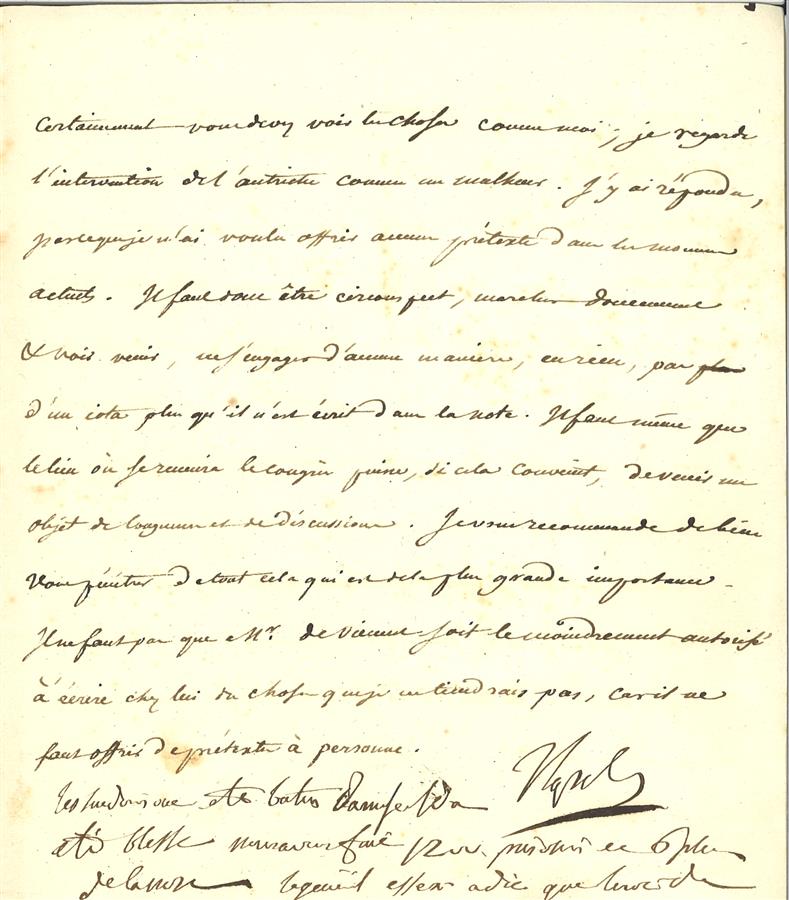 Certainement vous devez voir les choses comme moi; je regarde
l'intervention de l'autriche comme un malheur. J'y ai répondu,
parceque je n'ai voulu offrir aucun prétexte dans les momens
actuels. Il faut donc être circonspect, marcher doucement
& voir venir, ne s'engager d'aucune manière, en rien, pas
d'un iota plus qu'il n'est écrit dans la note. Il faut même que
le lieu où se réunira le congrès puisse, si cela convient, devenir un
objet de longueurs et de discussions. Je vous recommande de bien
vous pénétrer de tout cela qui est de la plus grande importance.
Il ne faut pas que Mr. de Vienne soit le moindrement autorisé
à écrire chez lui des choses que je ne tiendrais pas, car il ne
faut offrir de prétexte à personne.
les ont été battus
été blessé nous avons fait 1200 et 6
que